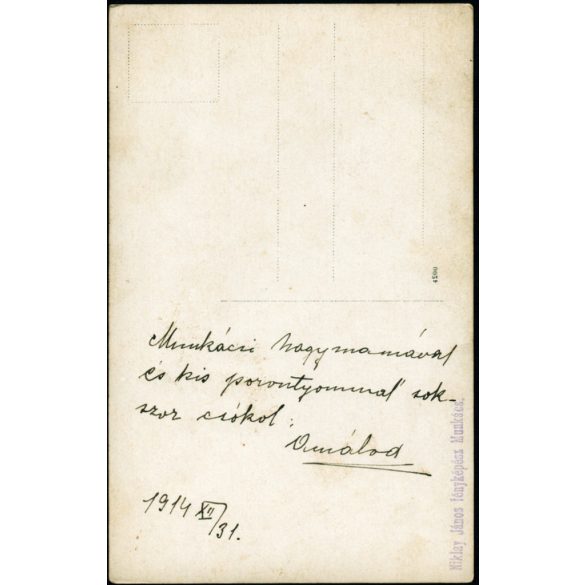 Munkácsi nagymamával
és kis porontyommal sok-
szor csókol:
Amálod
1914 XII/31.
Niklay János fényképész Munkács.